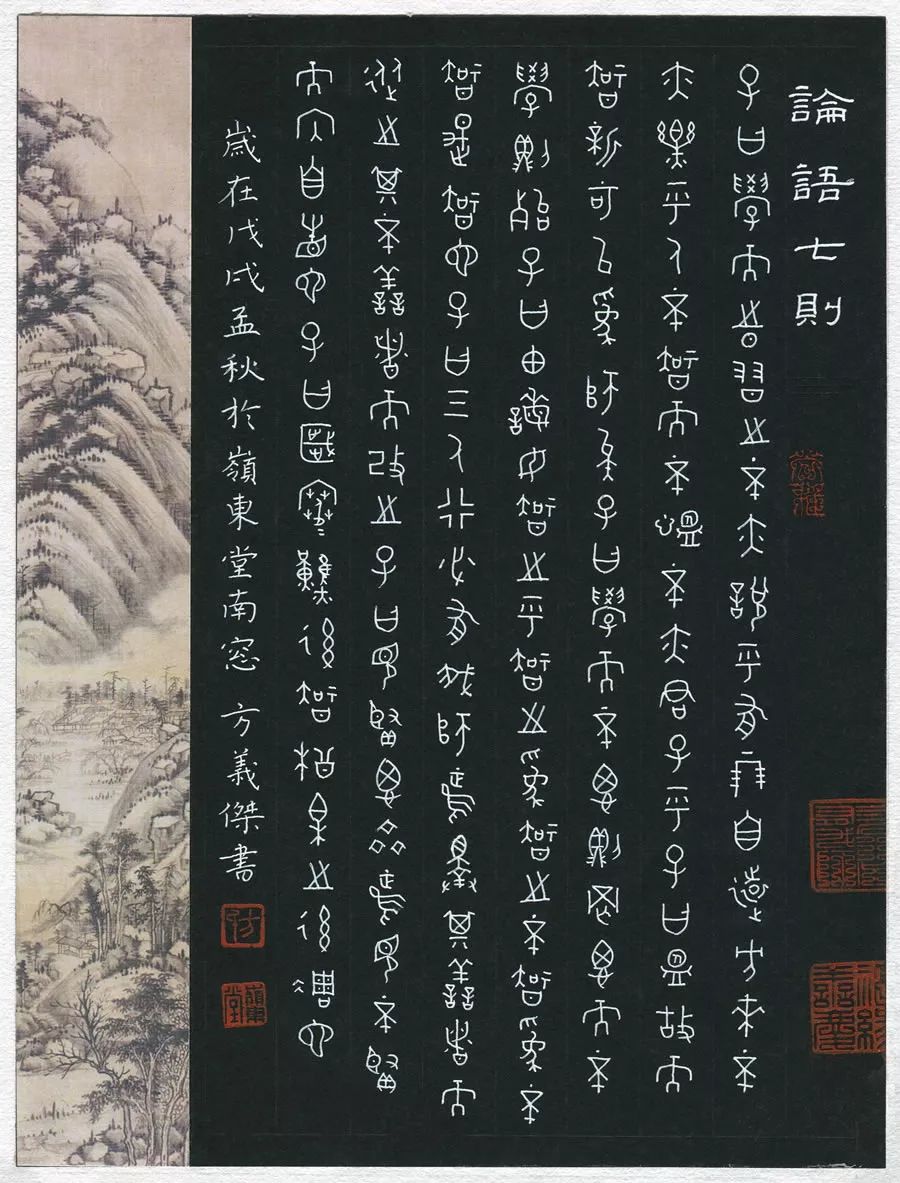 論語七則
子曰學而時習之不亦說乎有朋自遠方來不
亦樂乎人不知而不慍不亦君子乎子曰溫故而
知新可以為師矣子曰學而不思則罔思而不
學則殆子曰由誨女知之乎知之為知之不知為不
知是知也子曰三人行必有我師焉擇其善者而
從之其不善者而改之子曰見賢思齊焉見不賢
而內自省也子曰歲寒然後知松柏之後凋也
歲在戊戌孟秋於嶺東堂南窓 方義傑書